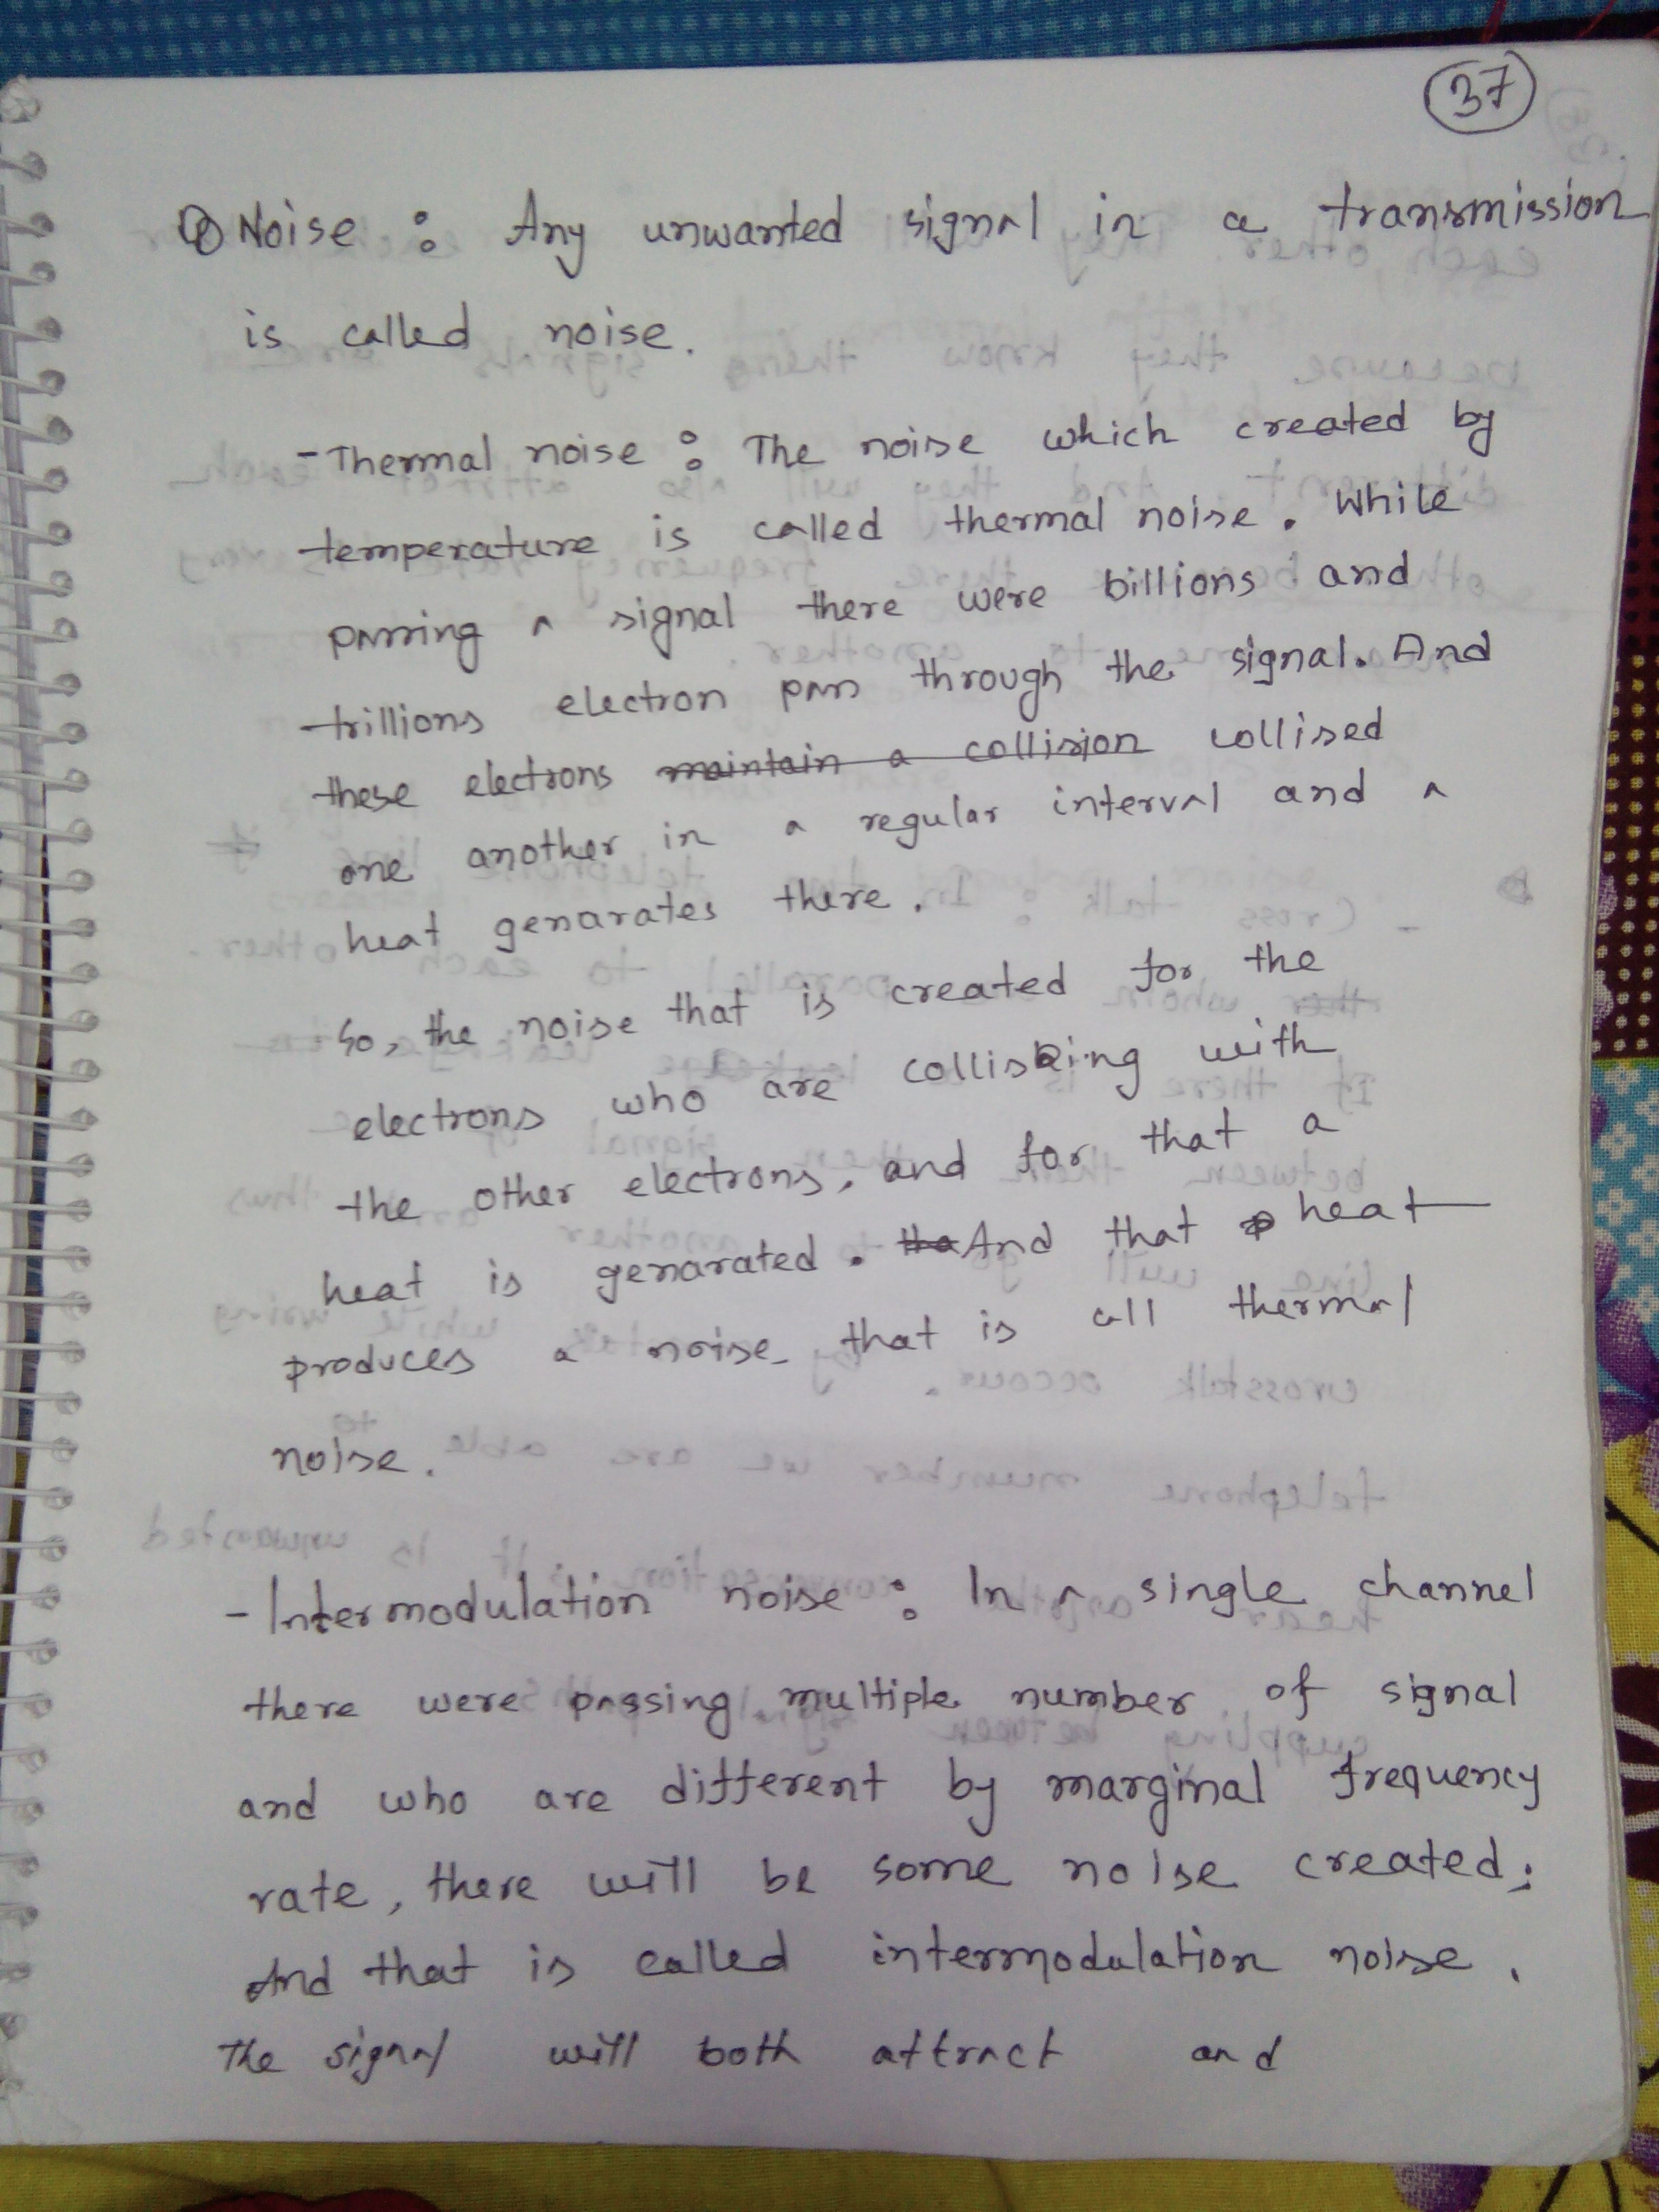 37
Noise : Any unwanted signal in a transmission
is called noise.
- Thermal noise : The noise which created by
temperature is called thermal noise. While
passing a signal there were billions and
trillions electron pass through the signal. And
these electrons maintain a collision collised
one another in a regular interval and a
heat genarates there.
So, the noise that is created for the
electrons who are collising with
the other electrons, and for that a
heat is genarated. And that heat
produces a noise that is call thermal
noise.
- Intermodulation noise : In a single channel
there were passing multiple number of signal
and who are different by marginal frequency
rate, there will be some noise created;
And that is called intermodulation noise.
The signal will both attract and